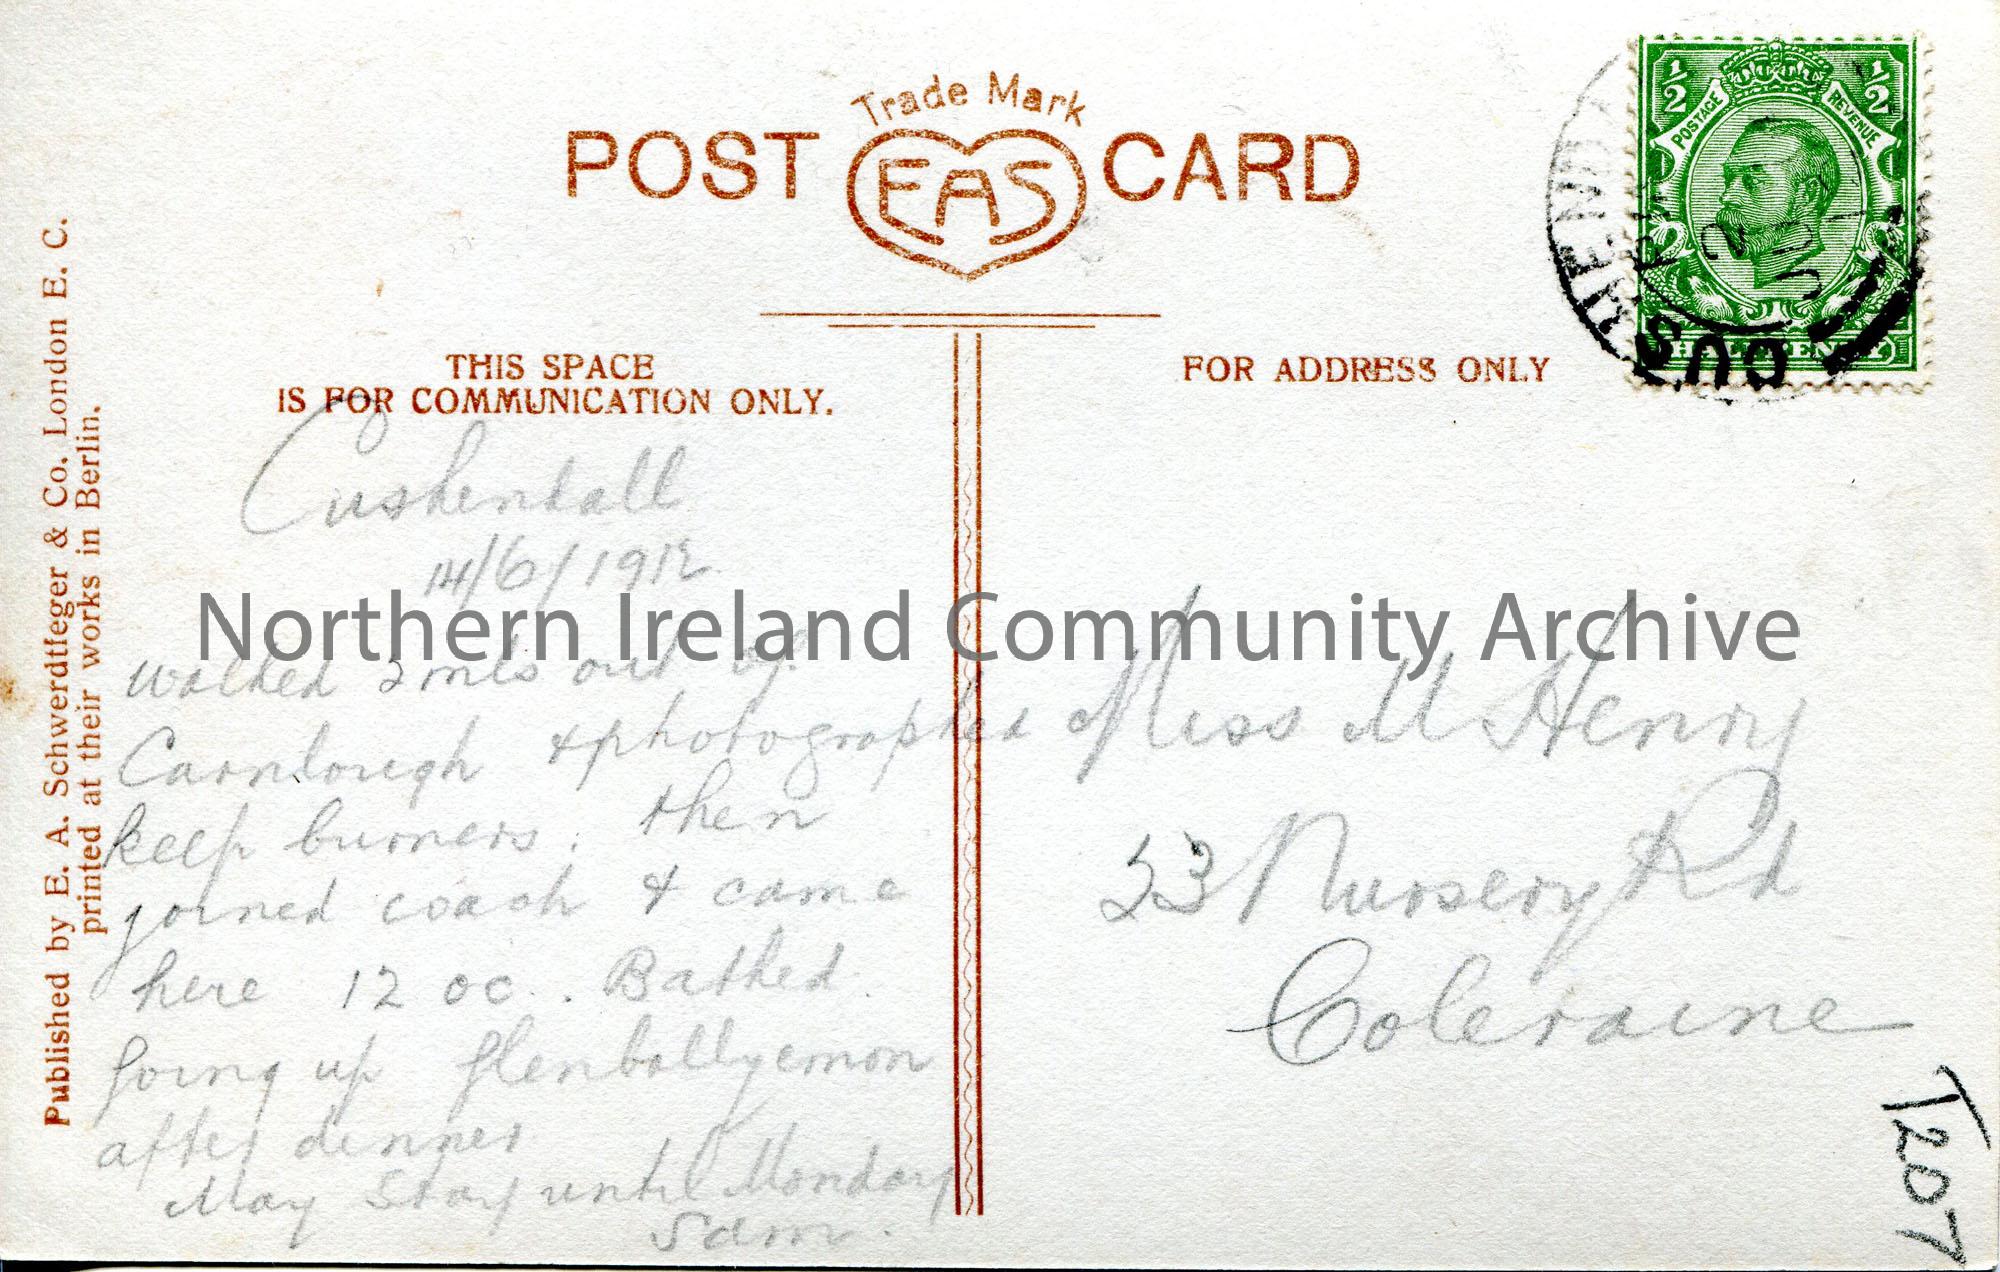 Trade Mark
POST EAS CARD
THIS SPACE
IS FOR COMMUNICATION ONLY.
FOR ADDRESS ONLY
Published by E. A. Schwerdtfeger & Co. London E. C.
printed at their works in Berlin.
½ ½
POSTAGE REVENUE
HALFPENNY
CUS
Cushendall
14/6/1912
walked 2 mls out of
Carnlough & photographed
keep burners. then
joined coach & came
here 12 oc. Bathed.
going up glenballyemon
after dinner
May stay until Monday
Sam.
Miss M Henry
23 Nursery Rd
Coleraine
T207
Northern Ireland Community Archive